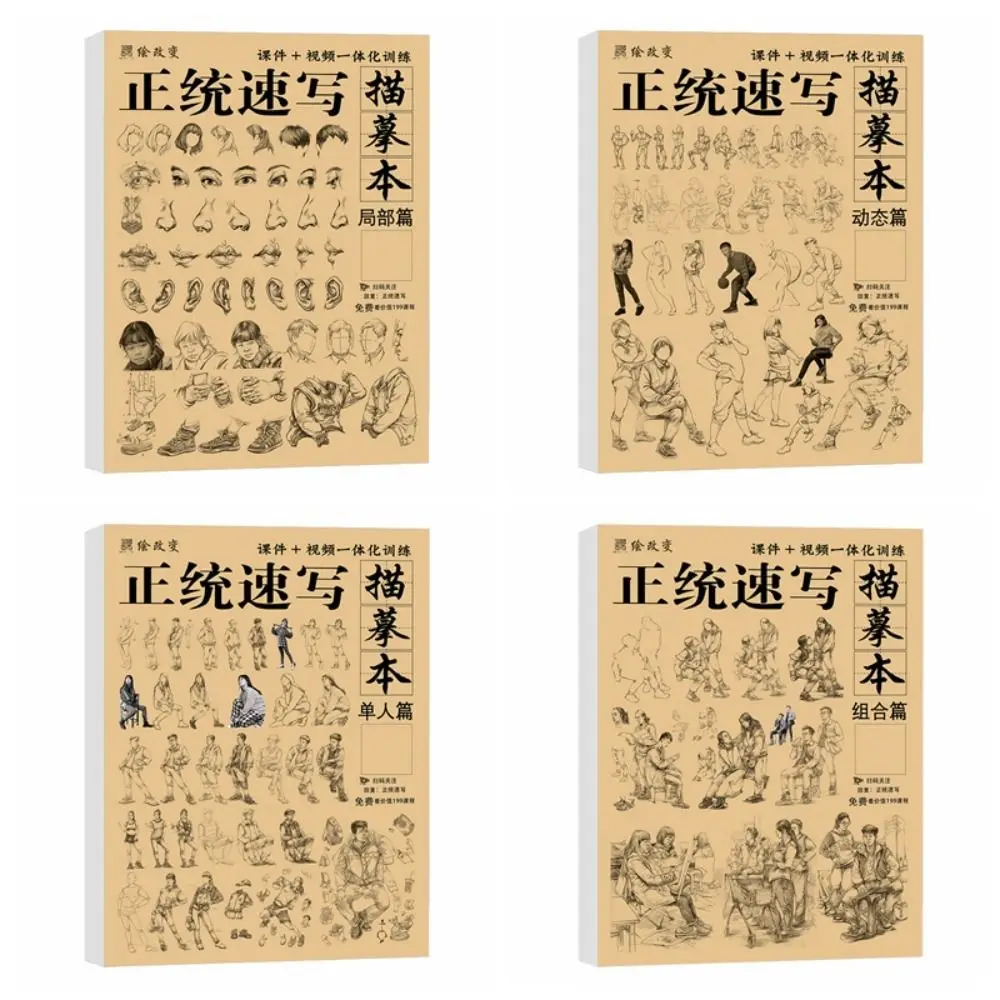 绘改变
课件 + 视频一体化训练
正统速写
描
摹
本
局部篇
扫码关注
回复：正统速写
免费看价值199课程
绘改变
课件 + 视频一体化训练
正统速写
描
摹
本
动态篇
扫码关注
回复：正统速写
免费看价值199课程
绘改变
课件 + 视频一体化训练
正统速写
描
摹
本
单人篇
扫码关注
回复：正统速写
免费看价值199课程
绘改变
课件 + 视频一体化训练
正统速写
描
摹
本
组合篇
扫码关注
回复：正统速写
免费看价值199课程